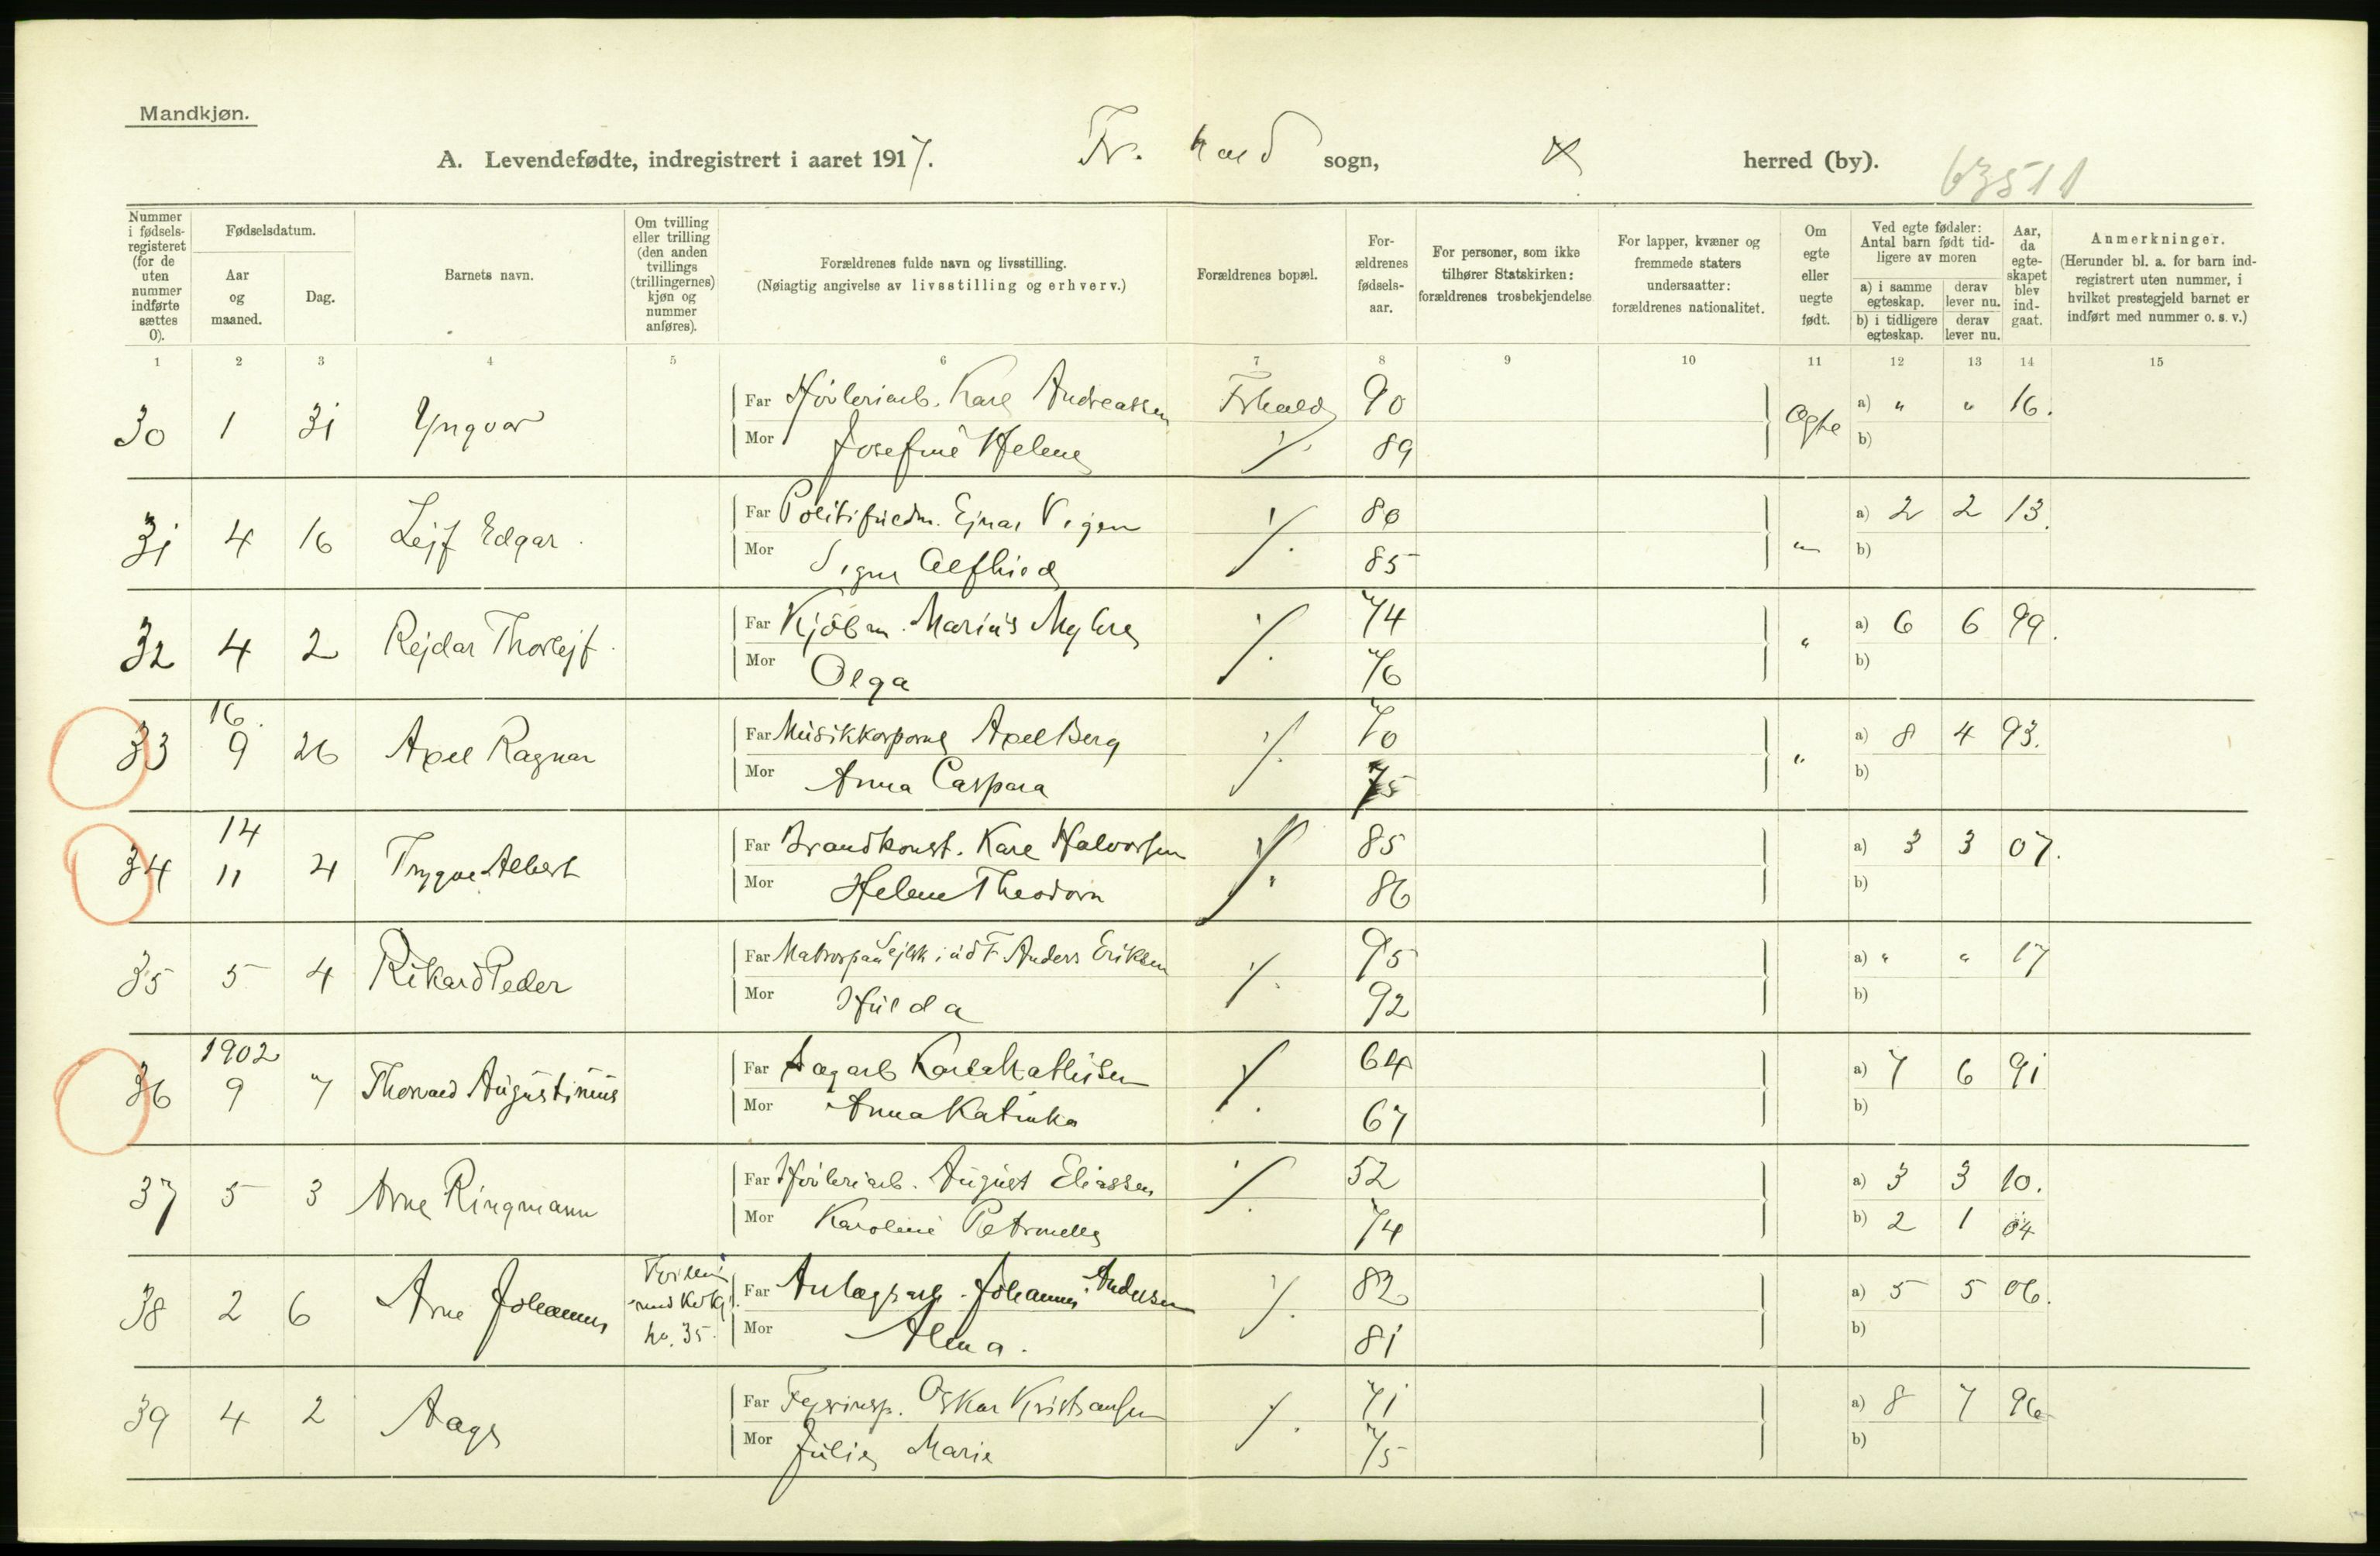 Mandkjøn.
A. Levendefødte, indregistrert i aaret 1917. Fr. hald sogn, herred (by). 63511
Nummer i fødsels-registeret (for de uten nummer indførte sættes 0).
Fødselsdatum.
Aar og maaned.
Dag.
Barnets navn.
Om tvilling eller trilling (den anden tvillings (trillingernes) kjøn og nummer anføres).
Forældrenes fulde navn og livsstilling.
(Nøiagtig angivelse av livsstilling og erhverv.)
Forældrenes bopæl.
For-ældrenes fødsels-aar.
For personer, som ikke tilhører Statskirken: forældrenes trosbekjendelse
For lapper, kvæner og fremmede staters undersaatter: forældrenes nationalitet.
Om egte eller uegte født.
Ved egte fødsler: Antal barn født tid-ligere av moren
a) i samme egteskap. derav lever nu.
b) i tidligere egteskap. derav lever nu.
Aar, da egte-skapet blev ind-gaat.
Anmerkninger.
(Herunder bl. a. for barn ind-registrert uten nummer, i hvilket prestegjeld barnet er indført med nummer o. s. v.)
1 2 3 4 5 6 7 8 9 10 11 12 13 14 15
30 1 31 Yngvar Far Høvleriarb. Karl Andreassen Frhald 90 Egte a) " " 16.
Mor Josefine Helene ./. 89 b)
31 4 16 Lejf Edgar. Far Ejnar Vigen ./. 80 " a) 2 2 13.
Mor Signe Alfhild 85 b)
32 4 2 Rejdar Thorlejf. Far Kjøbm. Marius Myhre ./. 74 " a) 6 6 99.
Mor Olga 76 b)
33 16. 9 26 Axel Ragnar Far Musikkorporal Axel Berg ./. 70 " a) 8 4 93.
Mor Anna Caspara 75 b)
34 14 11 4 Trygve Albert Far Brandkonst. Karl Halvorsen ./. 85 a) 3 3 07.
Mor Helene Theodora 86 b)
35 5 4 Rikard Peder Far Anders Eriksen ./. 95 a) " " 17
Mor Hulda 92 b)
36 1902 9 7 Thorvald Augustinius Far Karl Mathisen ./. 64 a) 7 6 91
Mor Anna Katinka 67 b)
37 5 3 Arne Ringmann Far Høvleriarb. August Eliassen ./. 52 a) 3 3 10.
Mor Karoline Petronelle 74 b) 2 1 04
38 2 6 Arne Johannes Tvilling med Kvk. no. 35. Far Anlægsarb. Johannes Andersen ./. 82 a) 5 5 06.
Mor Alma. 81 b)
39 4 2 Aage Far Oskar Kristiansen ./. 71 a) 8 7 96
Mor Julie Marie 75 b)